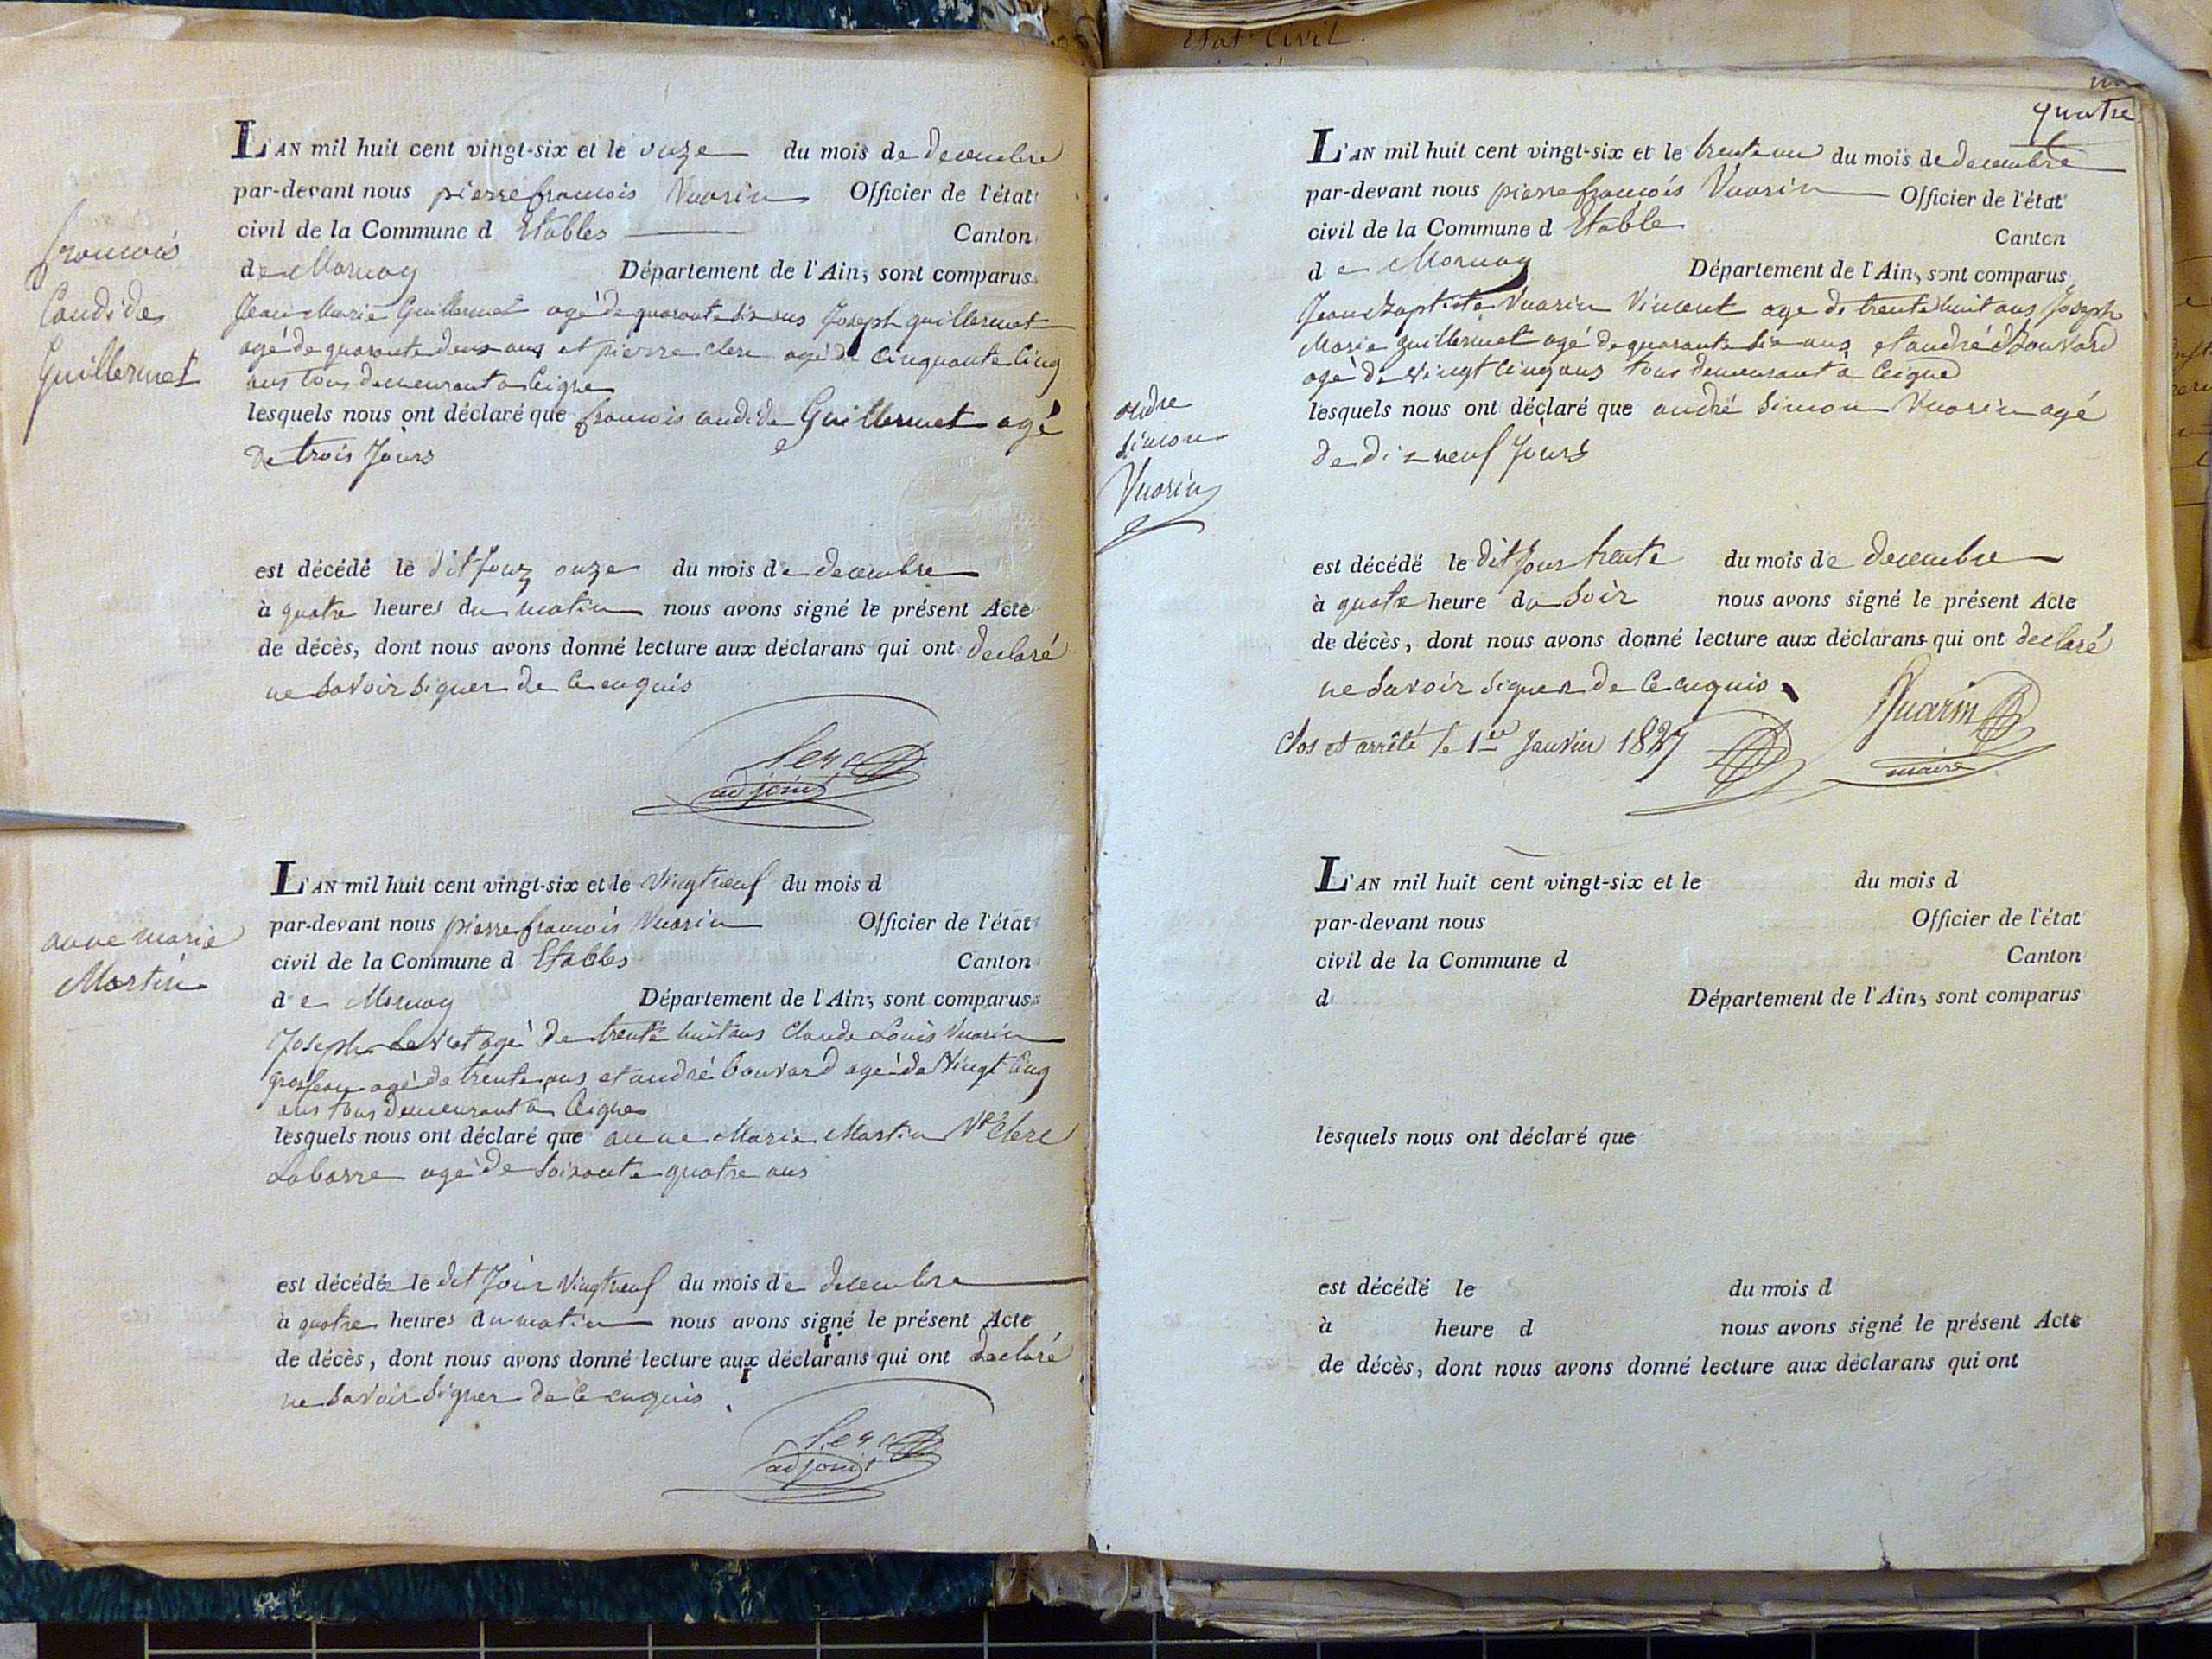 Etat Civil.
L'AN mil huit cent vingt-six et le onze du mois de decembre
par-devant nous pierre francois Vuarin Officier de l'état
civil de la Commune d Etables Canton
de Mornay Département de l'Ain, sont comparus
Jean Marie Guillermet agé de quarante six ans Joseph guillermet
agé de quarante deux ans et pierre clerc agé de cinquante cinq
ans tous demeurant a Ceigne
lesquels nous ont déclaré que francois candide Guillermet agé
de trois Jours
francois
Candide
Guillermet
est décédé le dit Jour onze du mois de decembre
à quatre heures du matin nous avons signé le présent Acte
de décès, dont nous avons donné lecture aux déclarans qui ont declaré
ne savoir signer de ce enquis
adjoint
L'AN mil huit cent vingt-six et le vingt neuf du mois d
par-devant nous pierre francois Vuarin Officier de l'état
civil de la Commune d Etables Canton
de Mornay Département de l'Ain, sont comparus
Joseph agé de trente huit ans Claude Louis Vuarin
agé de trente ans et andré bouvard agé de Vingt Cinq
ans tous demeurant a Ceigne
lesquels nous ont déclaré que anne Marie Martin Ve Clerc
Labarre agé de soixante quatre ans
anne marie
Martin
est décédée le dit Jour Vingt neuf du mois de decembre
à quatre heures du matin nous avons signé le présent Acte
de décès, dont nous avons donné lecture aux déclarans qui ont declaré
ne savoir signer de ce enquis
adjoint
quatre
L'AN mil huit cent vingt-six et le trente un du mois de decembre
par-devant nous pierre francois Vuarin Officier de l'état
civil de la Commune d Etable Canton
de Mornay Département de l'Ain, sont comparus
Jean baptiste Vuarin Vincent age de trente huit ans Joseph
Marie guillermet agé de quarante six ans et andré Bouvard
agé de vingt cinq ans tous demeurant à Ceigne
lesquels nous ont déclaré que andré Simon Vuarin agé
de dix neuf Jours
andre
simon
Vuarin
est décédé le dit Jour trente du mois de decembre
à quatre heure du Soir nous avons signé le présent Acte
de décès, dont nous avons donné lecture aux déclarans qui ont declaré
ne savoir signer de ce enquis
Vuarin
Clos et arrêté le 1er Janvier 1827
maire
L'AN mil huit cent vingt-six et le du mois d
par-devant nous Officier de l'état
civil de la Commune d Canton
d Département de l'Ain, sont comparus
lesquels nous ont déclaré que
est décédé le du mois d
à heure d nous avons signé le présent Acte
de décès, dont nous avons donné lecture aux déclarans qui ont